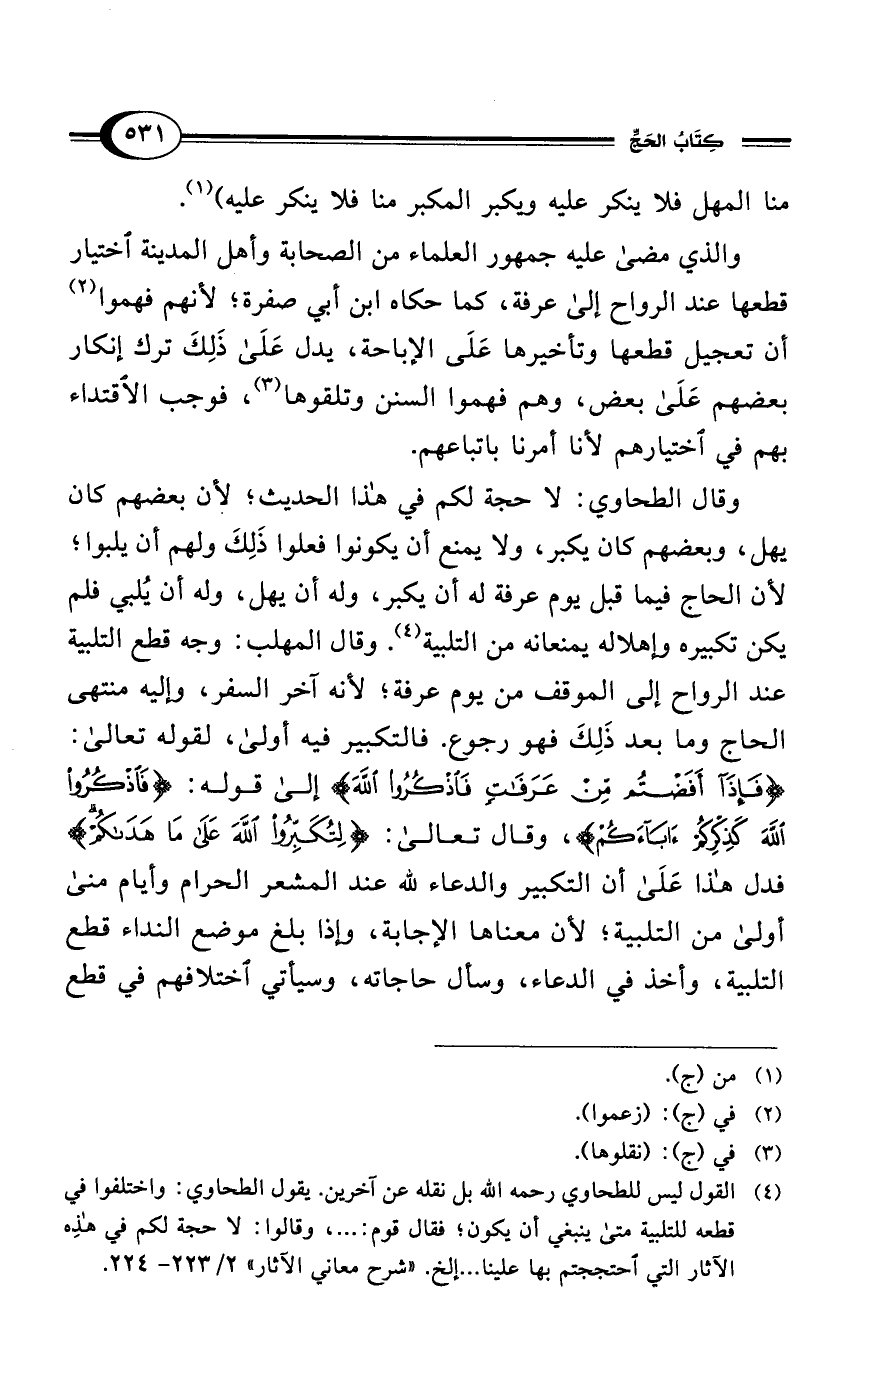 كِتَابُ الحَجِّ
٥٣١
منا المهل فلا ينكر عليه ويكبر المكبر منا فلا ينكر عليه)(١).
والذي مضىٰ عليه جمهور العلماء من الصحابة وأهل المدينة ٱختيار
قطعها عند الرواح إلىٰ عرفة، كما حكاه ابن أبي صفرة؛ لأنهم فهموا(٢)
أن تعجيل قطعها وتأخيرها عَلَى الإباحة، يدل عَلَىٰ ذَلِكَ ترك إنكار
بعضهم عَلَىٰ بعض، وهم فهموا السنن وتلقوها(٣)، فوجب الاقتداء
بهم في ٱختيارهم لأنا أمرنا باتباعهم.
وقال الطحاوي: لا حجة لكم في هذا الحديث؛ لأن بعضهم كان
يهل، وبعضهم كان يكبر، ولا يمنع أن يكونوا فعلوا ذَلِكَ ولهم أن يلبوا؛
لأن الحاج فيما قبل يوم عرفة له أن يكبر، وله أن يهل، وله أن يُلبي فلم
يكن تكبيره وإهلاله يمنعانه من التلبية(٤). وقال المهلب: وجه قطع التلبية
عند الرواح إلى الموقف من يوم عرفة؛ لأنه آخر السفر، وإليه منتهى
الحاج وما بعد ذَلِكَ فهو رجوع. فالتكبير فيه أولىٰ، لقوله تعالىٰ:
﴿فَإِذَآ أَفَضْتُم مِّنْ عَرَفَٰتٍ فَٱذْكُرُوا۟ ٱللَّهَ﴾ إلىٰ قوله: ﴿فَٱذْكُرُوا۟
ٱللَّهَ كَذِكْرِكُمْ ءَابَآءَكُمْ﴾، وقال تعالىٰ: ﴿لِتُكَبِّرُوا۟ ٱللَّهَ عَلَىٰ مَا هَدَىٰكُمْ ۗ﴾
فدل هذا عَلَىٰ أن التكبير والدعاء لله عند المشعر الحرام وأيام منىٰ
أولىٰ من التلبية؛ لأن معناها الإجابة، وإذا بلغ موضع النداء قطع
التلبية، وأخذ في الدعاء، وسأل حاجاته، وسيأتي ٱختلافهم في قطع
(١) من (ج).
(٢) في (ج): (زعموا).
(٣) في (ج): (نقلوها).
(٤) القول ليس للطحاوي رحمه الله بل نقله عن آخرين. يقول الطحاوي: واختلفوا في
قطعه للتلبية متىٰ ينبغي أن يكون؛ فقال قوم:...، وقالوا: لا حجة لكم في هذِه
الآثار التي ٱحتججتم بها علينا...إلخ. «شرح معاني الآثار» ٢/ ٢٢٣- ٢٢٤.